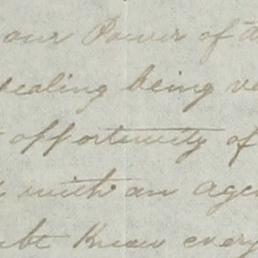 our Power of
ealing being ve
opportunity of
with an age
know every